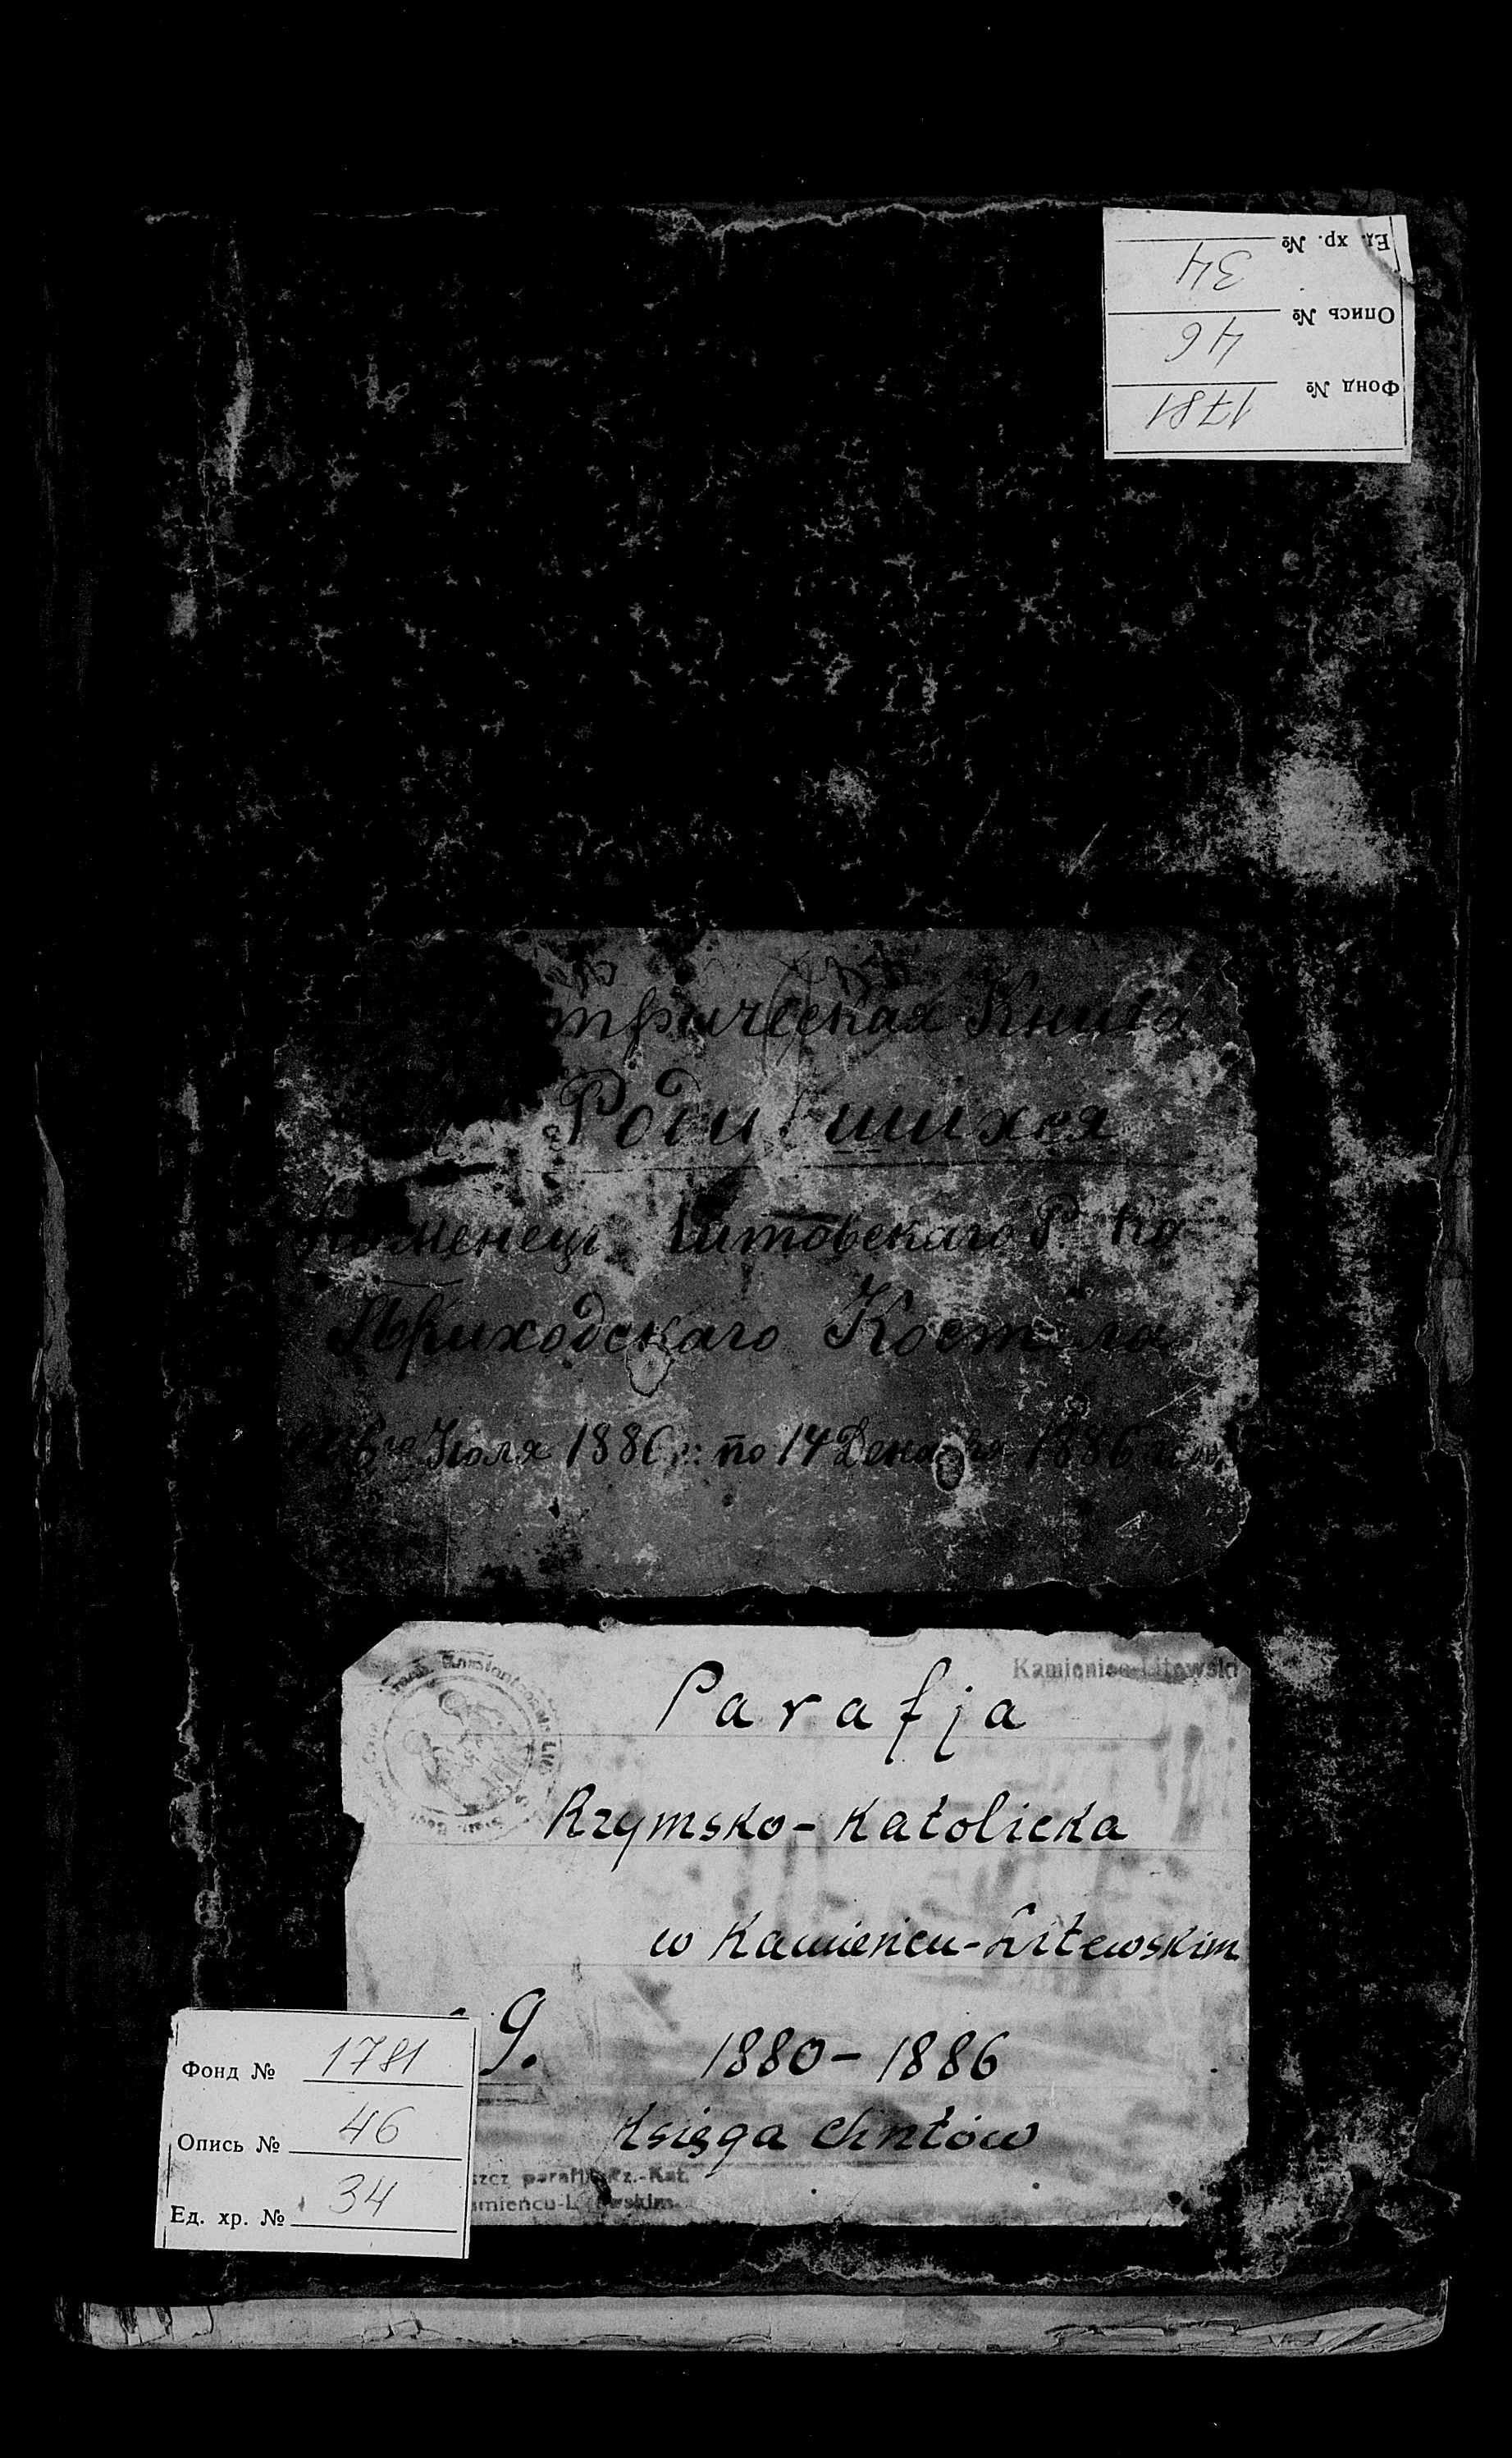 Ед. хр. № 34
Опись № 46
Фонд № 1781
трическая Книга
Родившихся
Каменецъ Литовскаго Р. Ко
Приходскаго Костела
Іюля 188 по 14 Декабря 1886
Kamieniec-Litewski
Parafja
Rzymsko-Katolicka
w Kamieńcu-Litewskim
9.
1880-1886
Księga chrztów
parafji Rz.-Kat.
Фонд № 1781
Опись № 46
Ед. хр. № 34